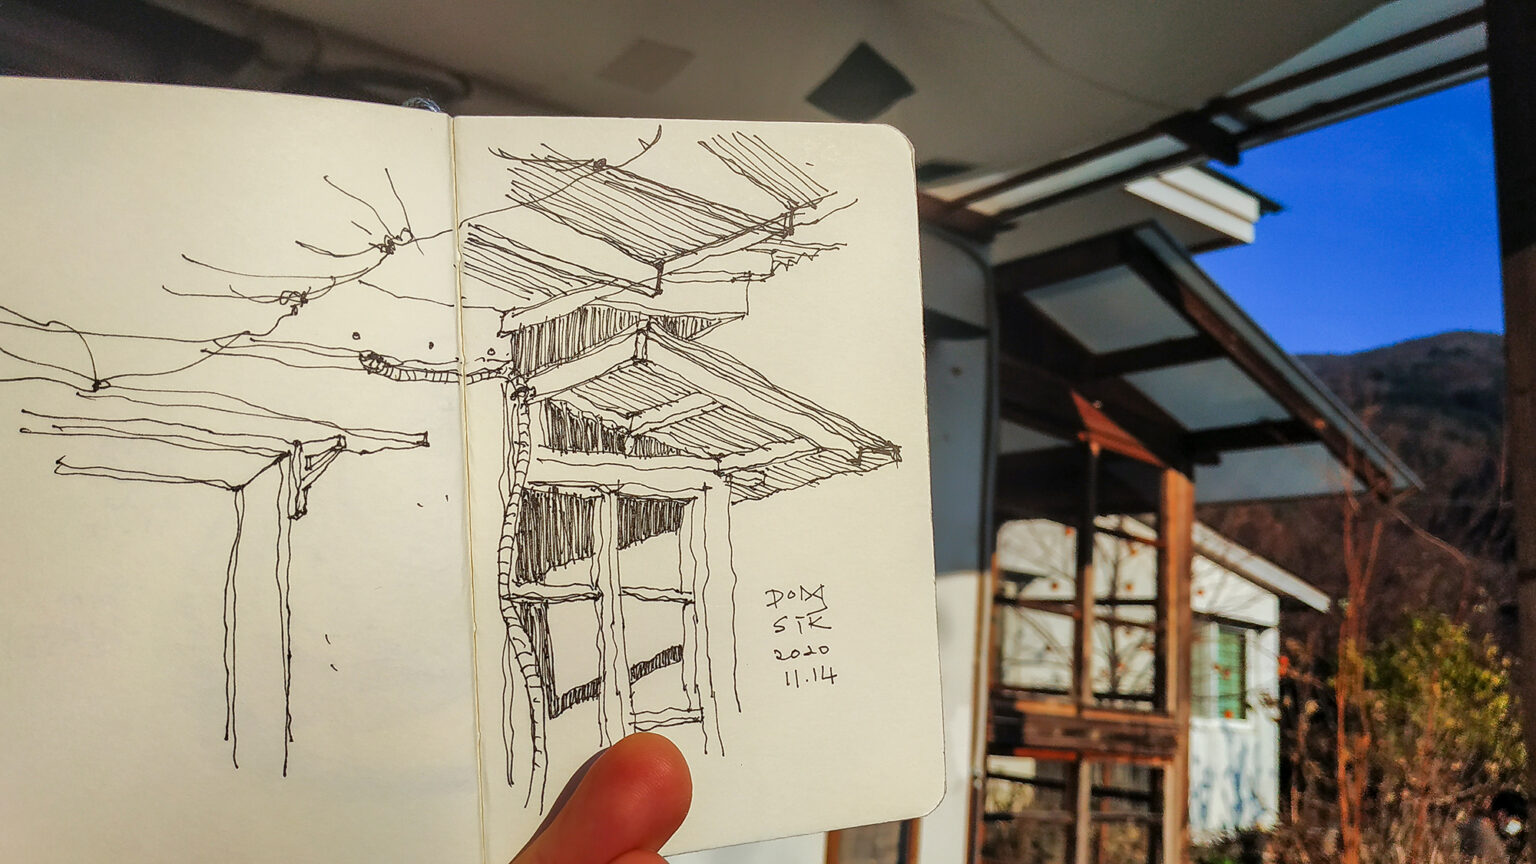 DONG
SIK
2020
11.14